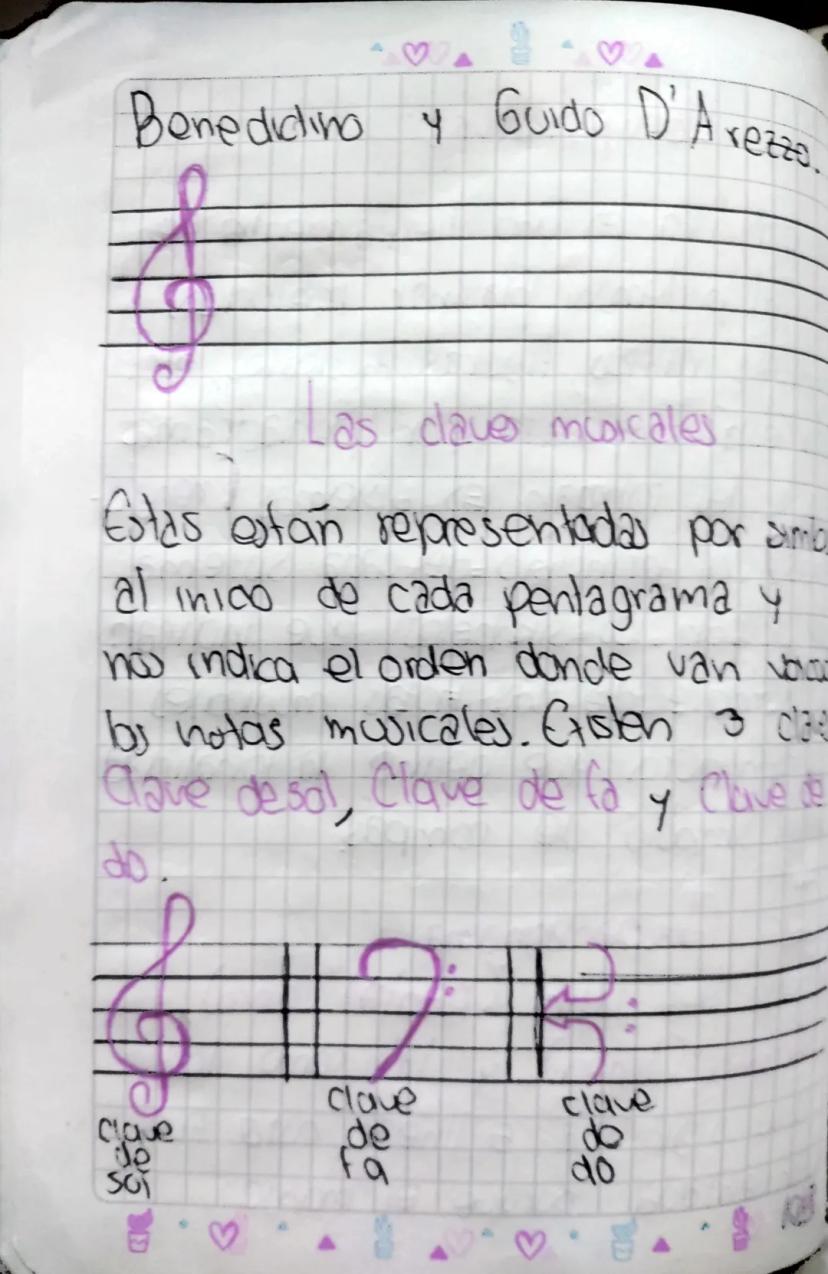 Benedictino y Guido D'Arezzo.
Las claves musicales
Estas estan representadas por
al inicio de cada pentagrama y
nos indica el orden donde van
las notas musicales. Existen 3
Clave de sol, Clave de fa y Clave de
do.
clave
de
sol
clave
de
fa
clave
do
do